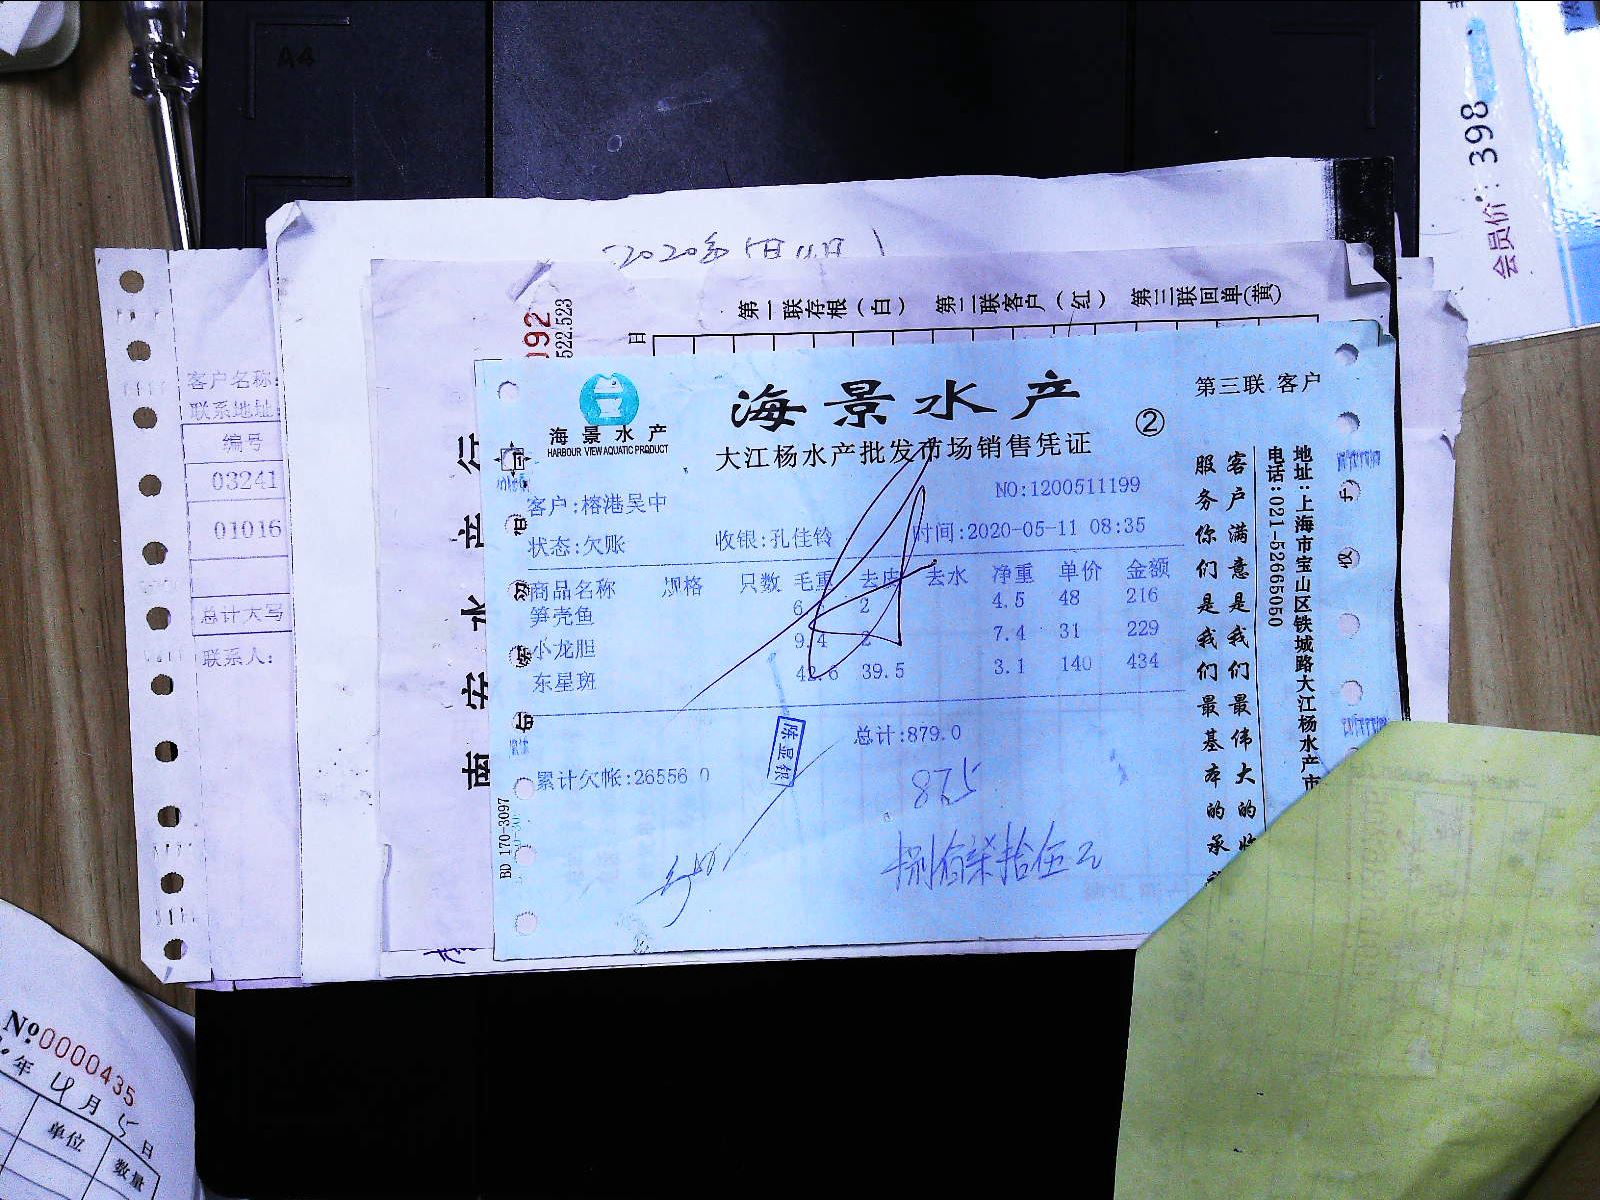 A4
398
会员价:
2020年5月11日
第一联存根(白) 第二联客户(红) 第三联回单(黄)
092
522.523
日
客户名称:
联系地址:
编号
03241
01016
总计大写
联系人:
南安水
海景水产
HARBOUR VIEW AQUATIC PRODUCT
海景水产
②
第三联 客户
大江杨水产批发市场销售凭证
客户:榕港吴中
NO:1200511199
状态:欠账 收银:孔佳铃 时间:2020-05-11 08:35
商品名称 规格 只数 毛重 去皮 去水 净重 单价 金额
笋壳鱼 6. 2 4.5 48 216
小龙胆 9.4 2 7.4 31 229
东星斑 42.6 39.5 3.1 140 434
总计:879.0
累计欠帐:26556 0
875
捌佰柒拾伍元
BD 170-3097
客户满意是我们最伟大的
服务你们是我们最基本的承
地址:上海市宝山区铁城路大江杨水产市
电话:021-52665050
№0000435
年 4月5日
单位
数量